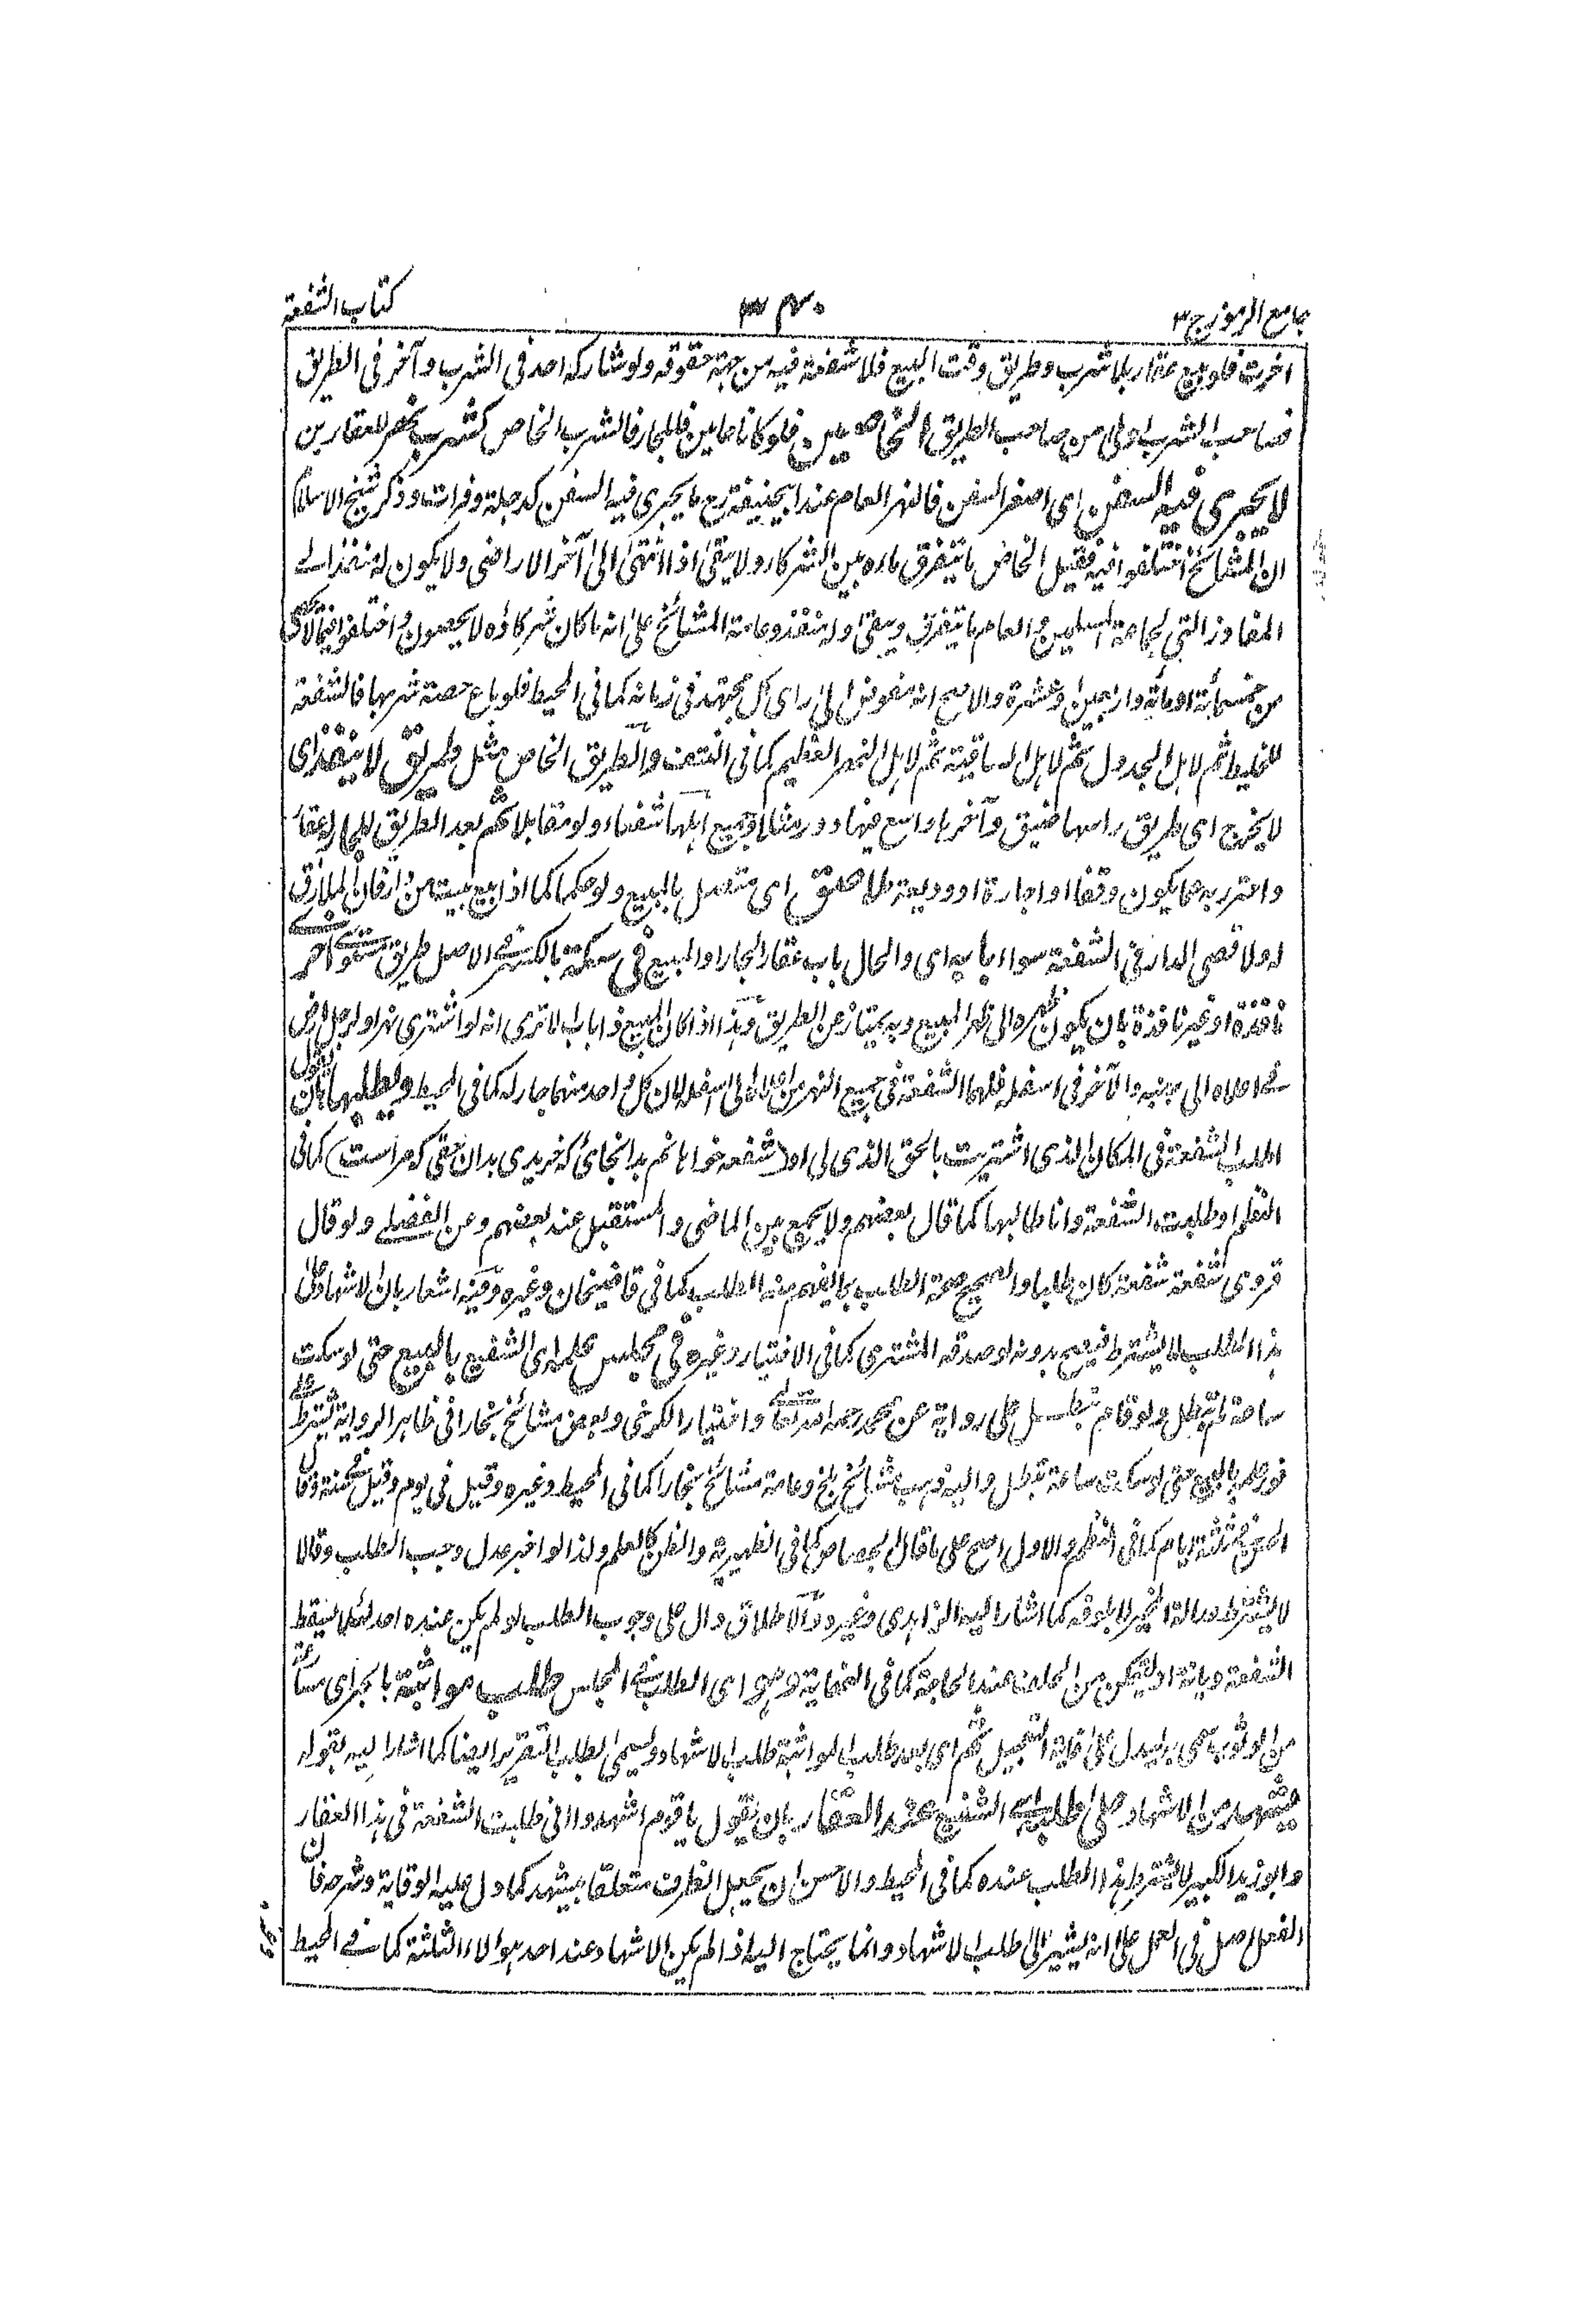 جامع الرموز ج ٣
٣٧٠
كتاب الشفعة
اخرت فلو بيع عقار بلا شرب وطريق وقت البيع فلا شفعة فيه من جهة حقوقه ولو شاركه احد فى الشرب وآخر فى الطريق
فصاحب الشرب اولى من صاحب الطريق الخاصين فلو كانا عامين فللجار فالشرب الخاص كشرب نهر للعقارين
لا يجرى فيه السفن اى اصغر السفن فالنهر العام عند ابيحنيفة رح ما يجرى فيه السفن كدجلة وفرات وذكر شيخ الاسلام
ان المشائخ اختلفوا فيه فقيل الخاص ما يتفرق ماره بين الشركاء ولا يبقى اذا انتهى الى آخر الاراضى ولا يكون له منفذ الى
المفاوز التى لجماعة المسلمين والعام ما يتفرق ويبقى وله منفذ وعامة المشائخ على انه ما كان شركاؤه لا يحصون واختلفوا
من خمسمائة او مائة واربعين وعشرة والاصح انه مفوض الى راى كل مجتهد فى زمانه كما فى المحيط فلو باع حصة شربها فالشفعة
للخليط ثم لاهل الجدول ثم لاهل الساقية ثم لاهل النهر العظيم كما فى النتف والطريق الخاص مثل طريق لا ينفذ اى
لا يخرج اى طريق راسها ضيق وآخرها واسع فيها دور مثلا فجميع اهلها شفعاء ولو مقابلا ثم بعد الطريق للجار
واحترز به عما يكون وقفا او اجارة او وديعة ملاصق اى متصل بالمبيع ولو حكما كما اذا بيع بيت من دار فان الملازق
له ولاقصى الدار فى الشفعة سواء بابه اى والحال باب عقار الجار او المبيع فى سكة بالكسر فى الاصل طريق
نافذة او غير نافذة بان يكون ظهره الى ظهر المبيع وبه يمتاز عن الطريق وهذا اذا كان المبيع ذا باب الا ترى انه لو اشترى نهرا ولرجل ارض
فى اعلاه الى جنبه والآخر فى اسفله فلهما الشفعة فى جميع النهر من اعلاه الى اسفله لان كل واحد منهما جار له كما فى المحيط ويطلبها بان يقول
اطلب الشفعة فى المكان الذى اشتريت بالحق الذى لى او (شفعه خواهانم بدانجاى كه خريدى بدان حقى كه مراست) كما فى
النظم او طلبت الشفعة وانا طالبها كما قال بعضهم ولا يجمع بين الماضى والمستقبل عند بعضهم وعن الفضلى ولو قال
قروى شفعة شفعة كان طلبا والصحيح صحة الطلب بما يفهم منه الطلب كما فى قاضيخان وغيره وفيه اشعار بان الاشهاد على
هذا الطلب لا يشترط فيصح بدونه لو صدقه المشترى كما فى الاختيار وغيره فى مجلس علمه اى الشفيع بالبيع حتى لو سكت
ساعة لم تبطل ولو قام تبطل على رواية عن محمد رحمه الله تعالى واختيار الكرخى وبعض مشائخ بخارا فى ظاهر الرواية يشترط على
فور علمه بالبيع حتى لو سكت ساعة تبطل واليه ذهب مشائخ بلخ وعامة مشائخ بخارا كما فى المحيط وغيره وقيل فى يوم وقيل
ثلثة ايام كما فى النظم والاول اصح على ما قال الجصاص كما فى الظهيرية والظن كالعلم ولذا لو اخبر عدل وجب الطلب وقالا
لا يشترط عدالة المخبر لا بلوغه كما اشار اليه الزاهدى وغيره والاطلاق دال على وجوب الطلب لو لم يكن عنده احد لئلا يسقط
الشفعة ديانة او ليتمكن من الحلف عند الحاجة كما فى النهاية وهو اى الطلب فى المجلس طلب مواثبة بالجر اى
من الوثوب سمى به ليدل على غاية التعجيل ثم اى بعد طلب المواثبة طلب الاشهاد ويسمى بطلب التقرير ايضا كما اشار اليه بقوله
يشهد من الاشهاد على طلبه اى الشفيع عند العقار بان يقول يا قوم اشهدوا انى طلبت الشفعة فى هذا العقار
وابو زيد الكبير لا يشترط هذا الطلب عنده كما فى المحيط والاحسن ان يجعل الظرف متعلقا بيشهد كما دل عليه الوقاية وشرحه فان
الفعل اصل فى العمل على انه يشير الى طلب الاشهاد وانما يحتاج اليه اذا لم يكن الاشهاد عند احد هؤلاء الثلثة كما فى المحيط